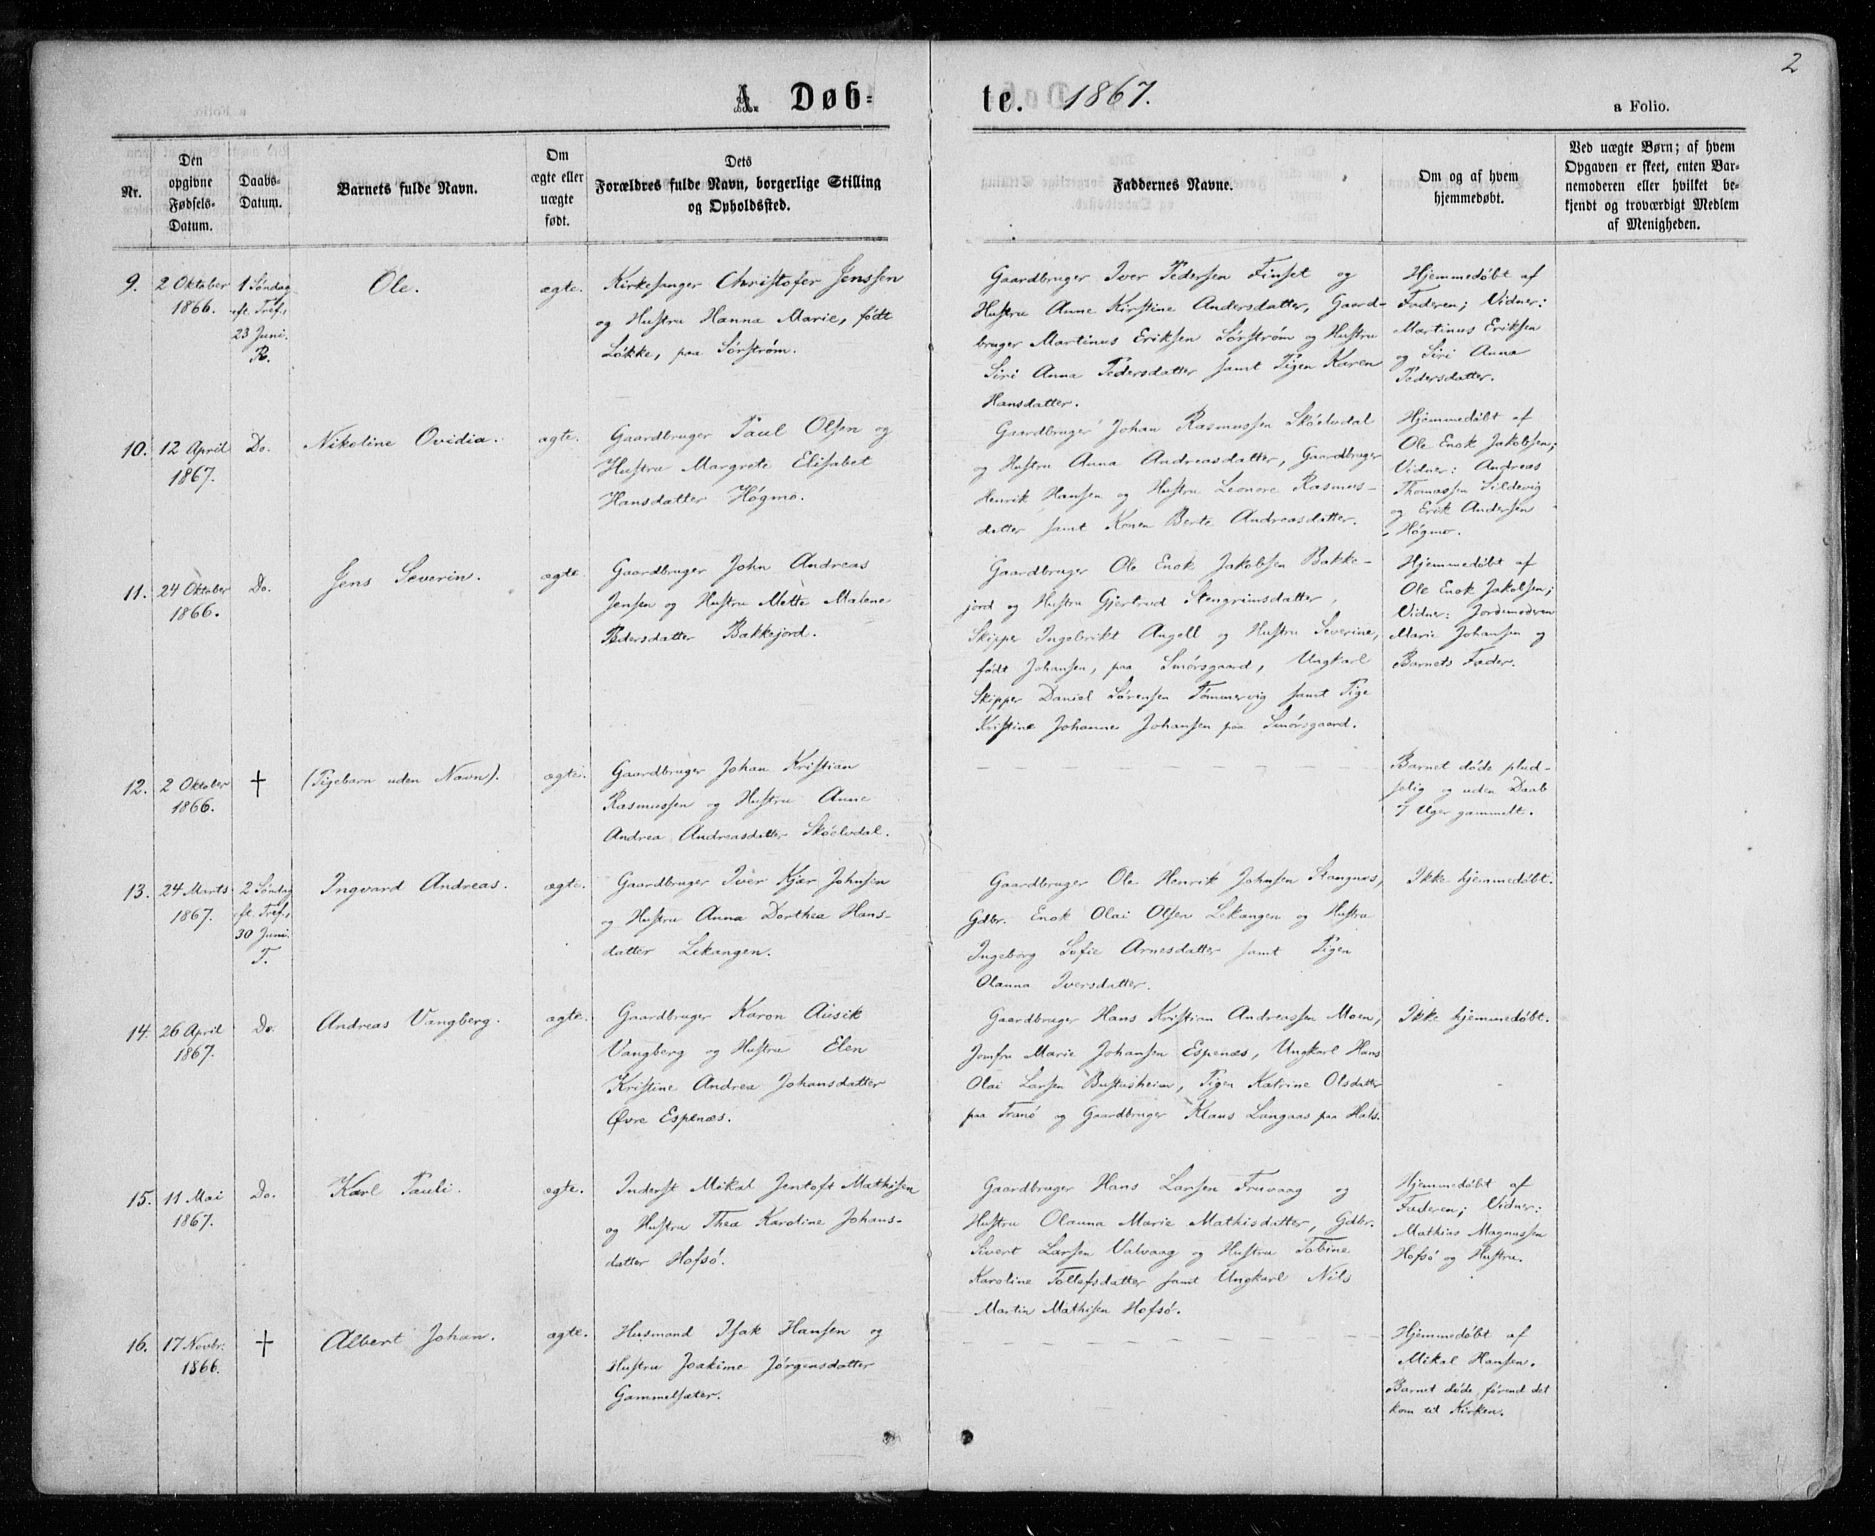 2
A. Døb-
te. 1867.
a Folio.
Nr.
Den
opgivne
Fødsels-
Datum.
Daabs-
Datum.
Barnets fulde Navn.
Om
ægte eller
uægte
født.
Dets
Forældres fulde Navn, borgerlige Stilling
og Opholdssted.
Faddernes Navne.
Om og af hvem
hjemmedøbt.
Ved uægte Børn; af hvem
Opgaven er skeet, enten Bar-
nemoderen eller hvilket be-
kjendt og troværdigt Medlem
af Menigheden.
9.
2 Oktober
1866.
1 Søndag
eft. Tref.,
23 Juni.
R.
Ole.
ægte.
Kirkesanger Christofer Jenssen
og Hustru Hanna Marie, født
Løkke, paa Sørstrøm.
Gaardbruger Iver Pedersen Finset og
Hustru Anne Kirstine Andersdatter, Gaard-
bruger Martinus Eriksen Sørstrøm og Hustru
Siri Anna Pedersdatter samt Pigen Karen
Hansdatter.
Hjemmedøbt af
Faderen; Vidner:
Martinus Eriksen
og Siri Anna
Pedersdatter.
10.
12 April
1867.
Do.
Nikoline Ovidia.
ægte.
Gaardbruger Paul Olsen og
Hustru Margrete Elisabet
Hansdatter Høgmo.
Gaardbruger Johan Rasmussen Skøelvdal
og Hustru Anna Andreasdatter, Gaardbruger
Henrik Hansen og Hustru Leonore Rasmus-
datter samt Konen Berte Andreasdatter.
Hjemmedøbt af
Ole Enok Jakobsen;
Vidner: Andreas
Thomassen Sildevig
og Erik Andersen
Høgmo.
11.
24 Oktober
1866.
Do.
Jens Severin.
ægte.
Gaardbruger John Andreas
Jensen og Hustru Mette Malene
Pedersdatter Bakkejord.
Gaardbruger Ole Enok Jakobsen Bakke-
jord og Hustru Gjertrud Stengrimsdatter,
Skipper Ingebrikt Angell og Hustru Severine,
født Johansen, paa Smørsgaard, Ungkarl
Skipper Daniel Sørensen Tømmervig samt Pige
Kristine Johanne Johansen paa Smørsgaard.
Hjemmedøbt af
Ole Enok Jakobsen;
Vidner: Jordemoderen
Marie Johansen og
Barnets Fader.
12.
2 Oktober
1866.
†
(Pigebarn uden Navn).
ægte.
Gaardbruger Johan Kristian
Rasmussen og Hustru Anne
Andrea Andreasdatter Skøelvdal.
— — — — — — — — —
Barnet døde plud-
selig og uden Daab
7 Uger gammelt.
13.
24 Marts
1867.
2 Søndag
eft. Tref.,
30 Juni.
T.
Ingvard Andreas.
ægte.
Gaardbruger Iver Kjær Johnsen
og Hustru Anna Dorthea Hans-
datter Lekangen.
Gaardbruger Ole Henrik Johnsen Stangnes,
Gdbr. Enok Olai Olsen Lekangen og Hustru
Ingeborg Sofie Arnesdatter samt Pigen
Olanna Iversdatter.
Ikke hjemmedøbt.
14.
26 April
1867.
Do.
Andreas Vangberg.
ægte.
Gaardbruger Karon Ausik
Vangberg og Hustru Elen
Kristine Andrea Johansdatter
Øvre Espenæs.
Gaardbruger Hans Kristian Andreassen Moen,
Jomfru Marie Johansen Espenæs, Ungkarl Hans
Olai Larsen Bustusheim, Pigen Katrine Olsdatter
paa Tranø og Gaardbruger Klaus Langaas paa Hals.
Ikke hjemmedøbt.
15.
11 Mai
1867.
Do.
Karl Pauli.
ægte.
Inderst Mikal Jentoft Mathisen
og Hustru Thea Karoline Johans-
datter Hofsø.
Gaardbruger Hans Larsen Fruvaag og
Hustru Olanna Marie Mathisdatter, Gdbr.
Sivert Larsen Valvaag og Hustru Tobine
Karoline Tollefsdatter samt Ungkarl Nils
Martin Mathisen Hofsø.
Hjemmedøbt af
Faderen; Vidner:
Mathias Magnussen
Hofsø og Hustru.
16.
17 Novbr.
1866.
†
Albert Johan.
ægte.
Husmand Isak Hansen og
Hustru Joakime Jørgensdatter
Gammelsæter.
— — — — — — — — —
Hjemmedøbt af
Mikal Hansen.
Barnet døde, førend det
kom til Kirken.